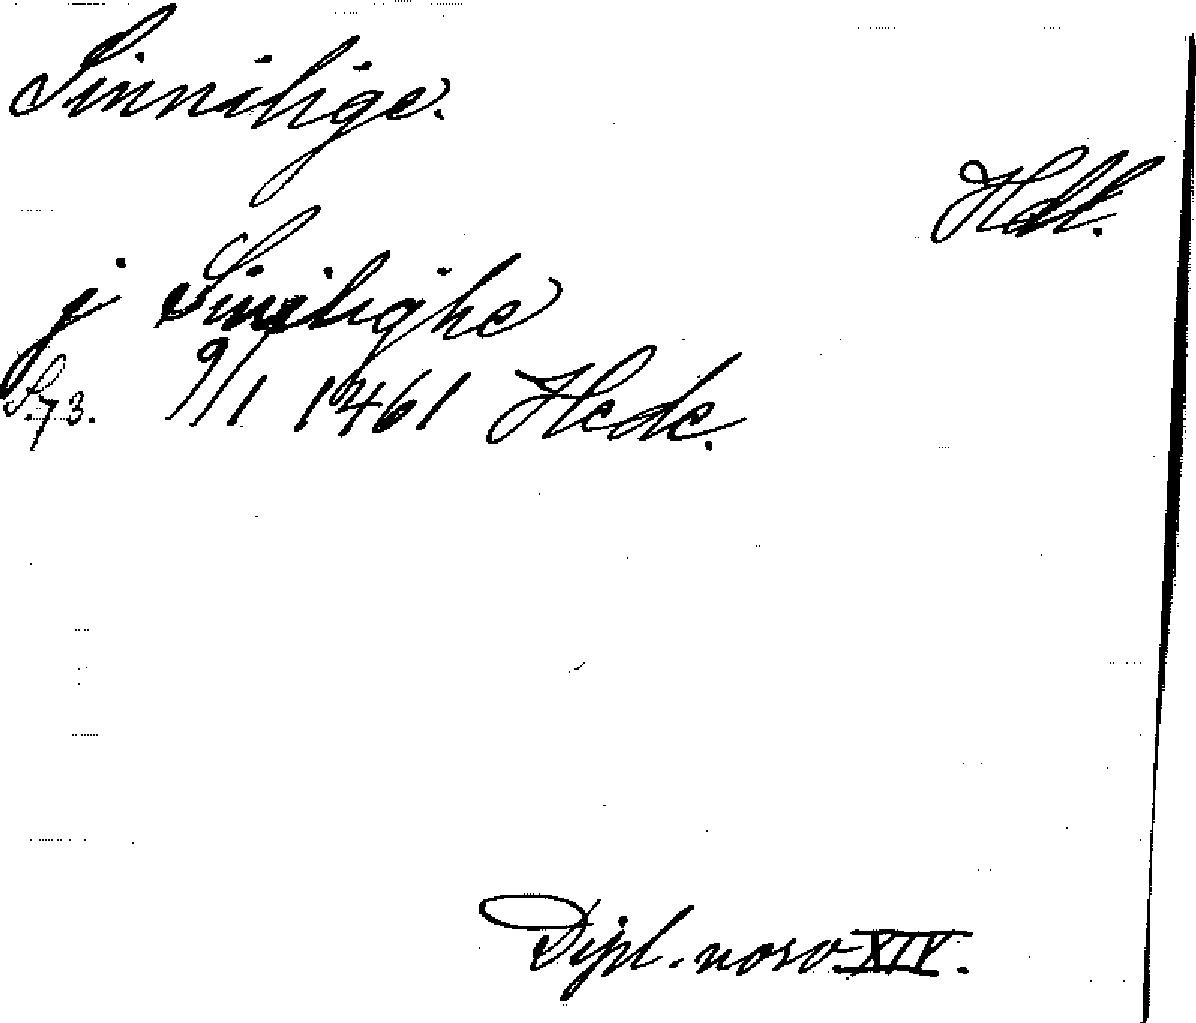 Sinnilige.
Hdl.
j Sinilighe
S. 73. 9/1 1461 Hede.
Dipl. norv. XIV.